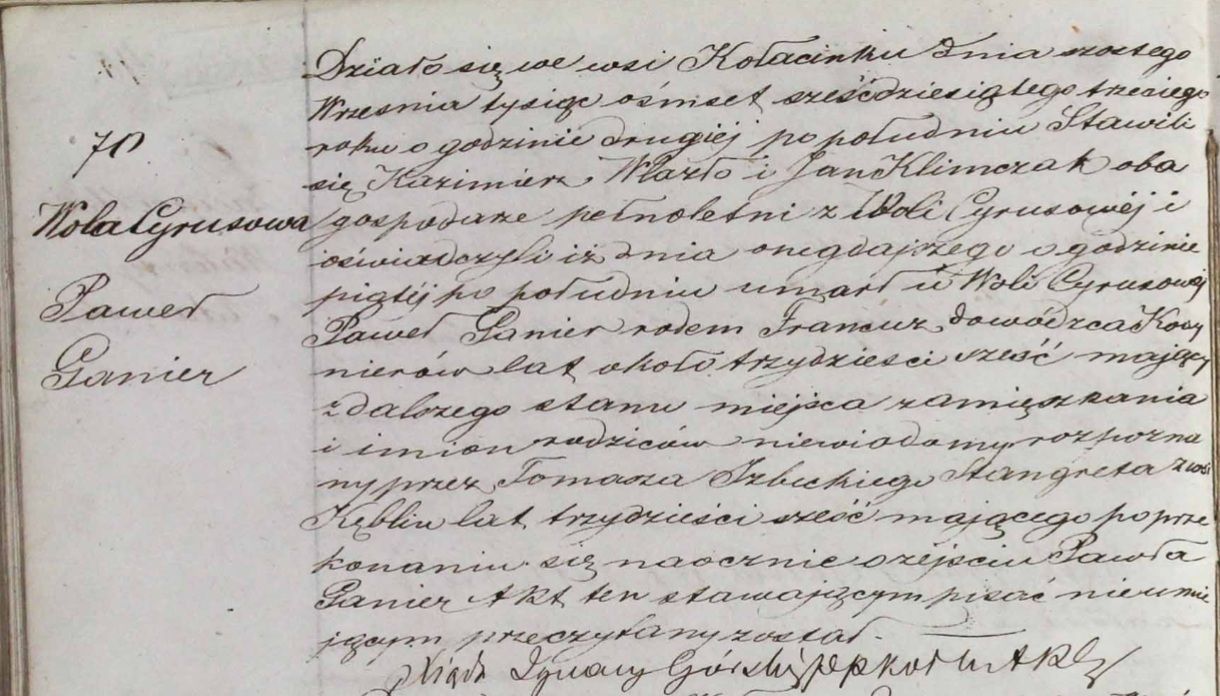 70
Wola Cyrusowa
Paweł
Ganier
Działo się we wsi Kołacinku dnia szostego
Wrzesnia tysiąc ośmset sześćdziesiątego trzeciego
roku o godzinie drugiéj po południu Stawili
się Kazimierz Wlazło i Jan Klimczak oba
gospodarze pełnoletni z Woli Cyrusowéj i
oświadczyli iż dnia onegdajszego o godzinie
piątéj po południu umarł w Woli Cyrusowej
Paweł Ganier rodem Francuz, dowódzca Kosy
nierów lat około trzydzieści sześć mający
z dalszego stanu miejsca zamięszkania
i imion rodziców niewiadomy rozpozna
ny przez Tomasza Izbickiego Stangreta z wsi
Kęblin lat trzydzieści sześć mającego po prze
konaniu się naocznie o zejściu Pawła
Ganier Akt ten stawającym pisać nieumie
jącym przeczytany został.
Xiądz Ignacy Górski